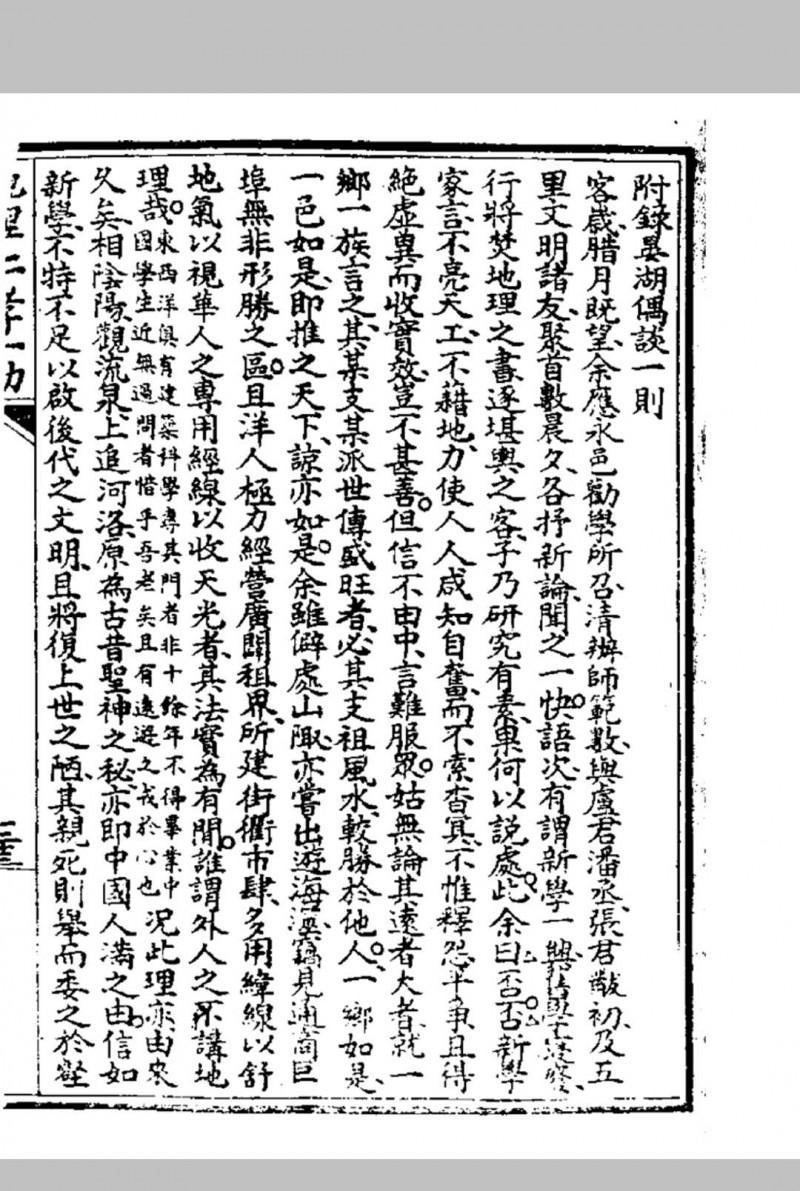 附錄晏湖偶談一則
客歲腊月既望余應永邑勸學所召清辦師範數與盧君潘丞張君黻初及五
里文明諸友聚首數晨夕各抒新論聞之一快語次有謂新學一興舊學寖廢
行將焚地理之書逐堪輿之客子乃研究有素果何以說處此余曰否否新學
家言不亮天工不藉地力使人人咸知自奮而不索杳冥不惟釋怨平爭且得
絕虛糞而收實效豈不甚善但信不由中言難服眾姑無論其遠者大者就一
鄉一族言之其某支某派世傳盛旺者必其支祖風水較勝於他人一鄉如是
一邑如是即推之天下諒亦如是余雖僻處山陬亦嘗出遊海澨竊見通商巨
埠無非形勝之區且洋人極力經營廣闢租界所建街衢市肆多用緯線以舒
地氣以視華人之專用經線以收天光者其法實為有閒誰謂外人之不講地
理哉東西洋俱有建築科學專其門者非十餘年不得畢業中國學生近無過問者惜乎吾老矣且有遠遊之戒於心也況此理亦由來
久矣相陰陽觀流泉上追河洛原為古昔聖神之秘亦即中國人滿之由信如
新學不特不足以啟後代之文明且將復上世之陋其親死則舉而委之於壑
地理二孝一力